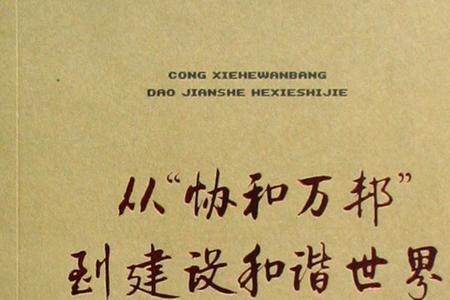 CONG XIEHEWANBANG
DAO JIANSHE HEXIESHIJIE
从“协和万邦”
到建设和谐世界